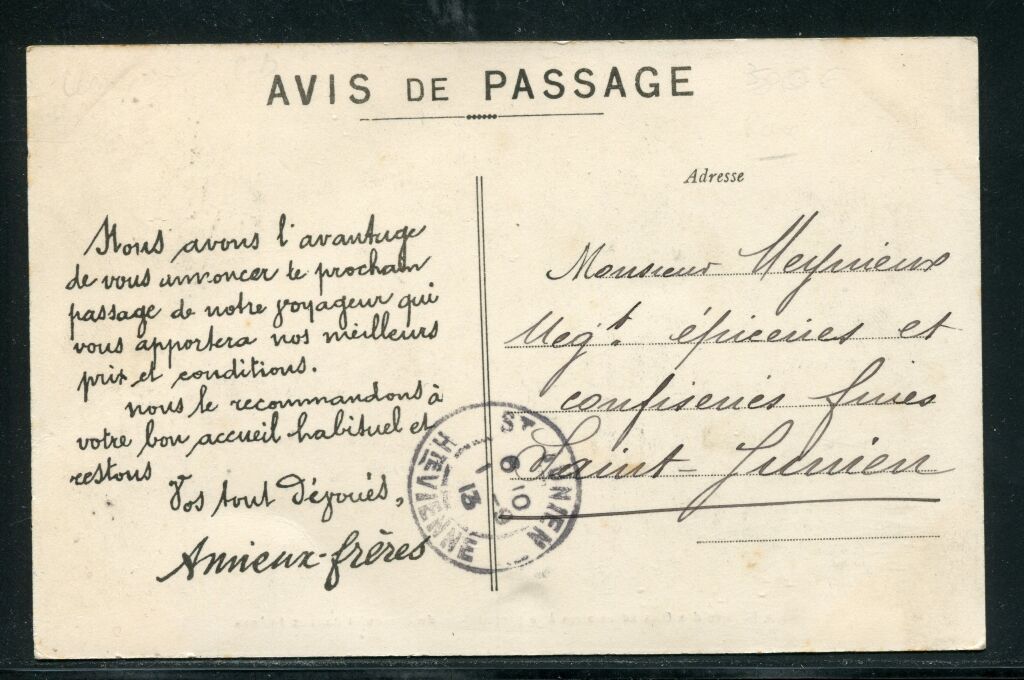 AVIS DE PASSAGE
Adresse
Nous avons l'avantage
de vous annoncer le prochain
passage de notre voyageur qui
vous apportera nos meilleurs
prix et conditions.
nous le recommandons à
votre bon accueil habituel et
restons
Vos tout Dévoués,
Amieux-frères
Monsieur Meynieux
Negt. épiceries et
confiseries fines
Saint-Junien
ST JUNIEN
HTE VIENNE